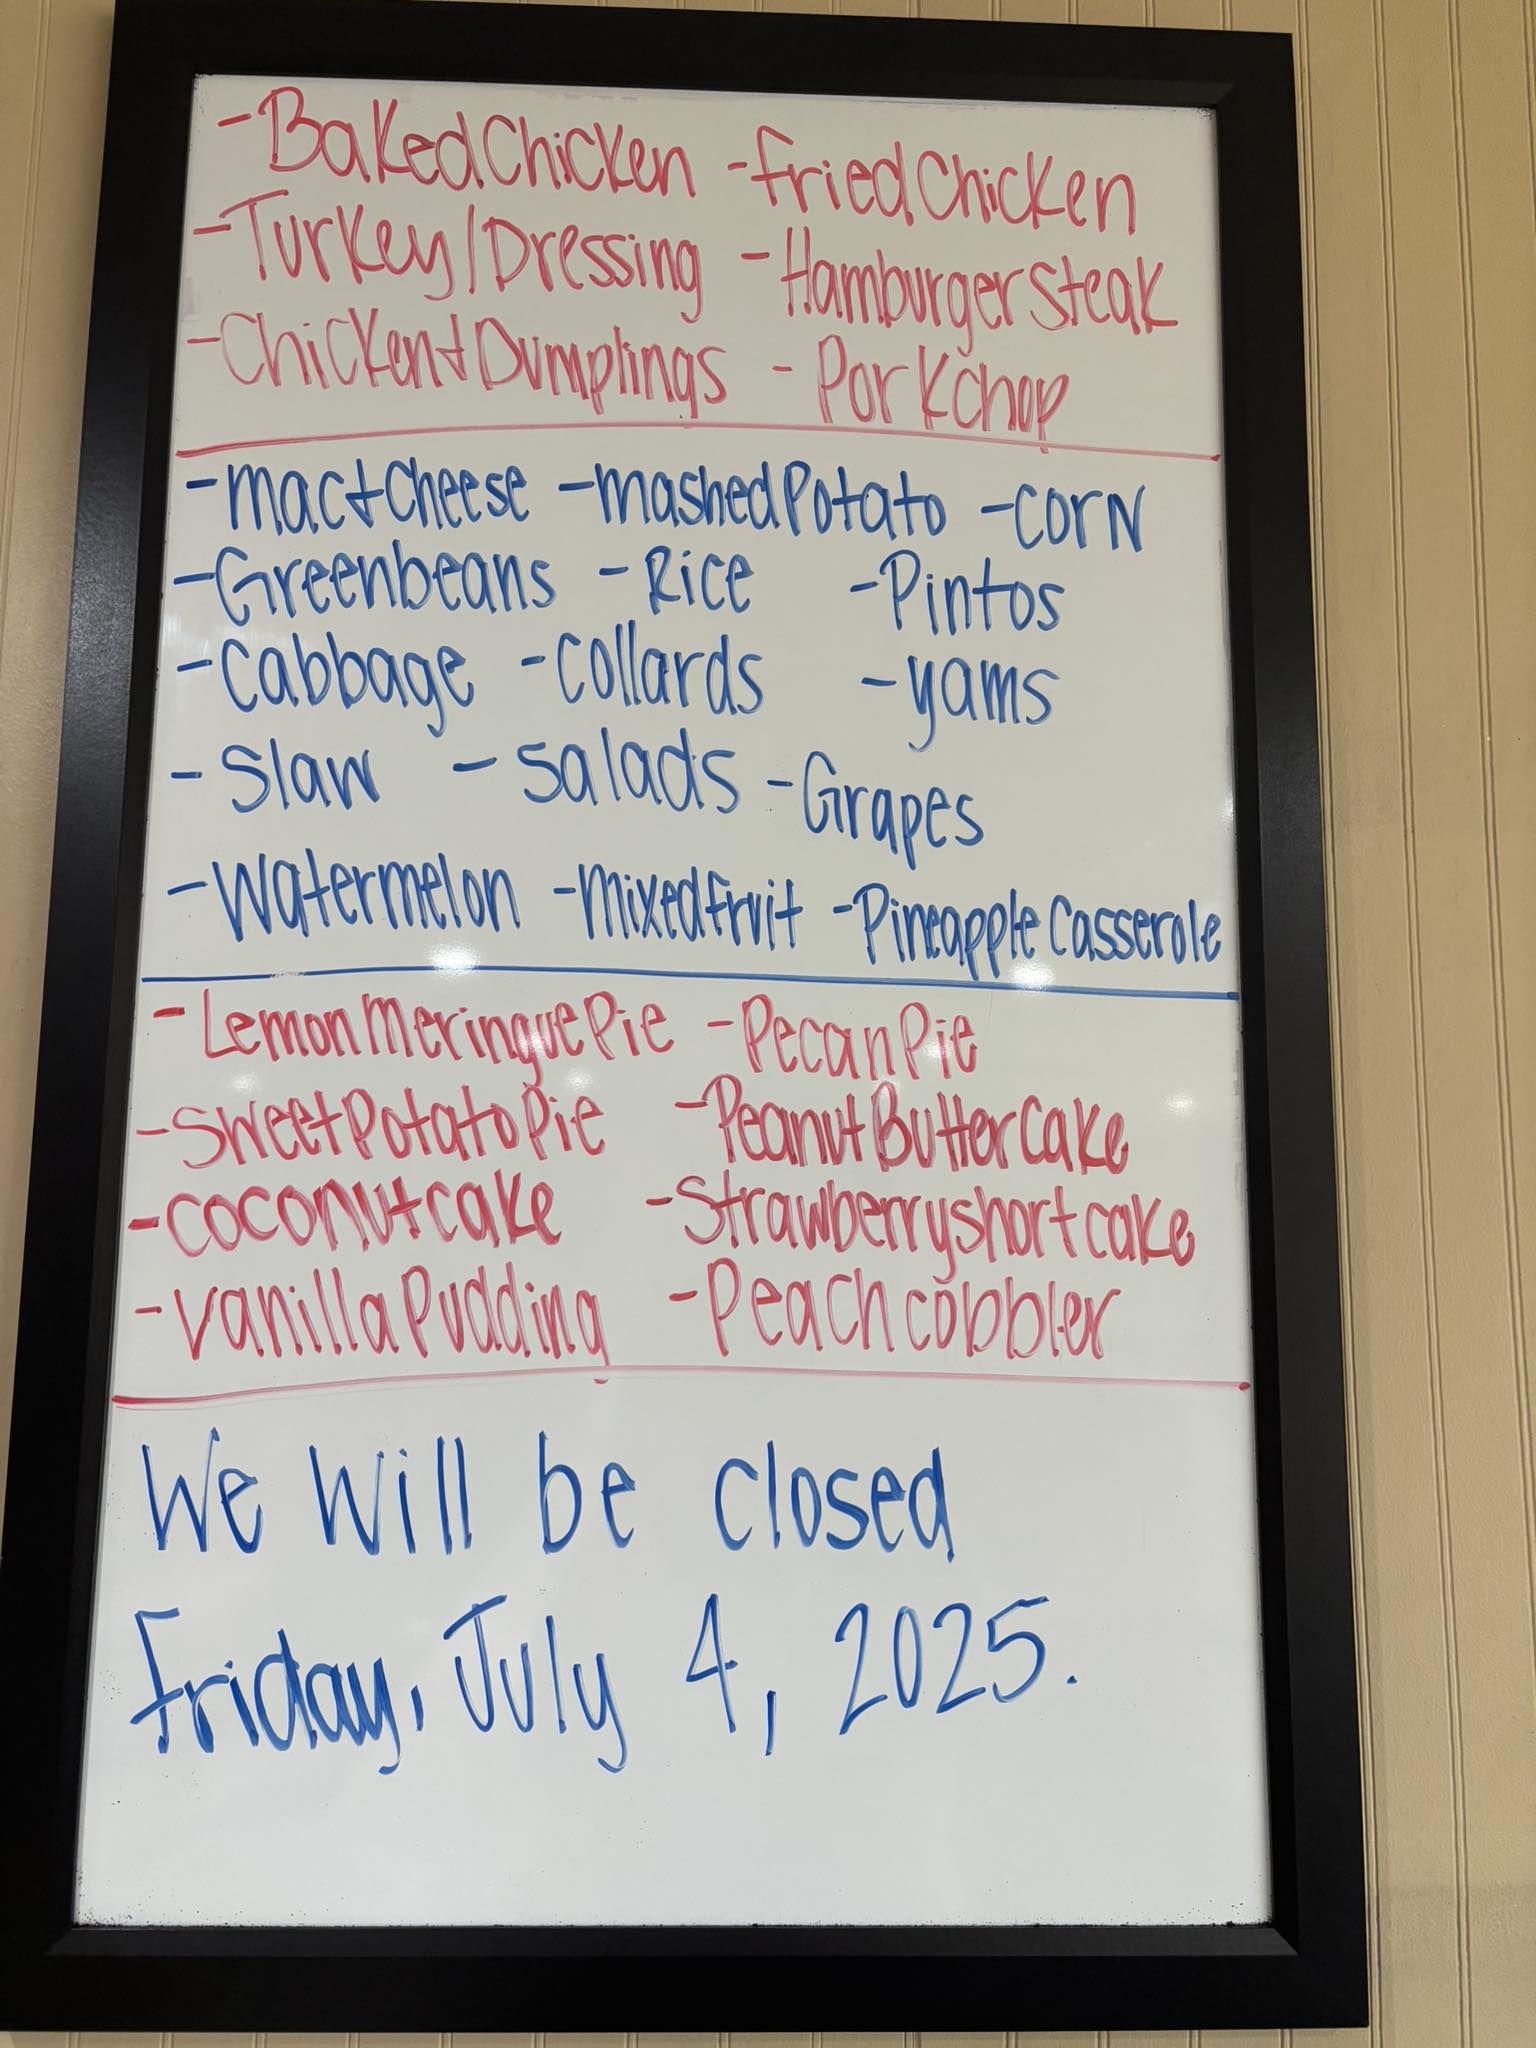 - Baked Chicken - Fried Chicken
- Turkey/Dressing - Hamburger Steak
- Chicken + Dumplings - Pork chop
- Mac + Cheese - mashed Potato - CORN
- Greenbeans - Rice - Pintos
- Cabbage - Collards - yams
- Slaw - Salads - Grapes
- Watermelon - Mixed fruit - Pineapple Casserole
- Lemon Meringue Pie - Pecan Pie
- Sweet Potato Pie - Peanut Butter Cake
- coconut cake - Strawberry short cake
- Vanilla Pudding - Peach cobbler
We will be closed
Friday, July 4, 2025.